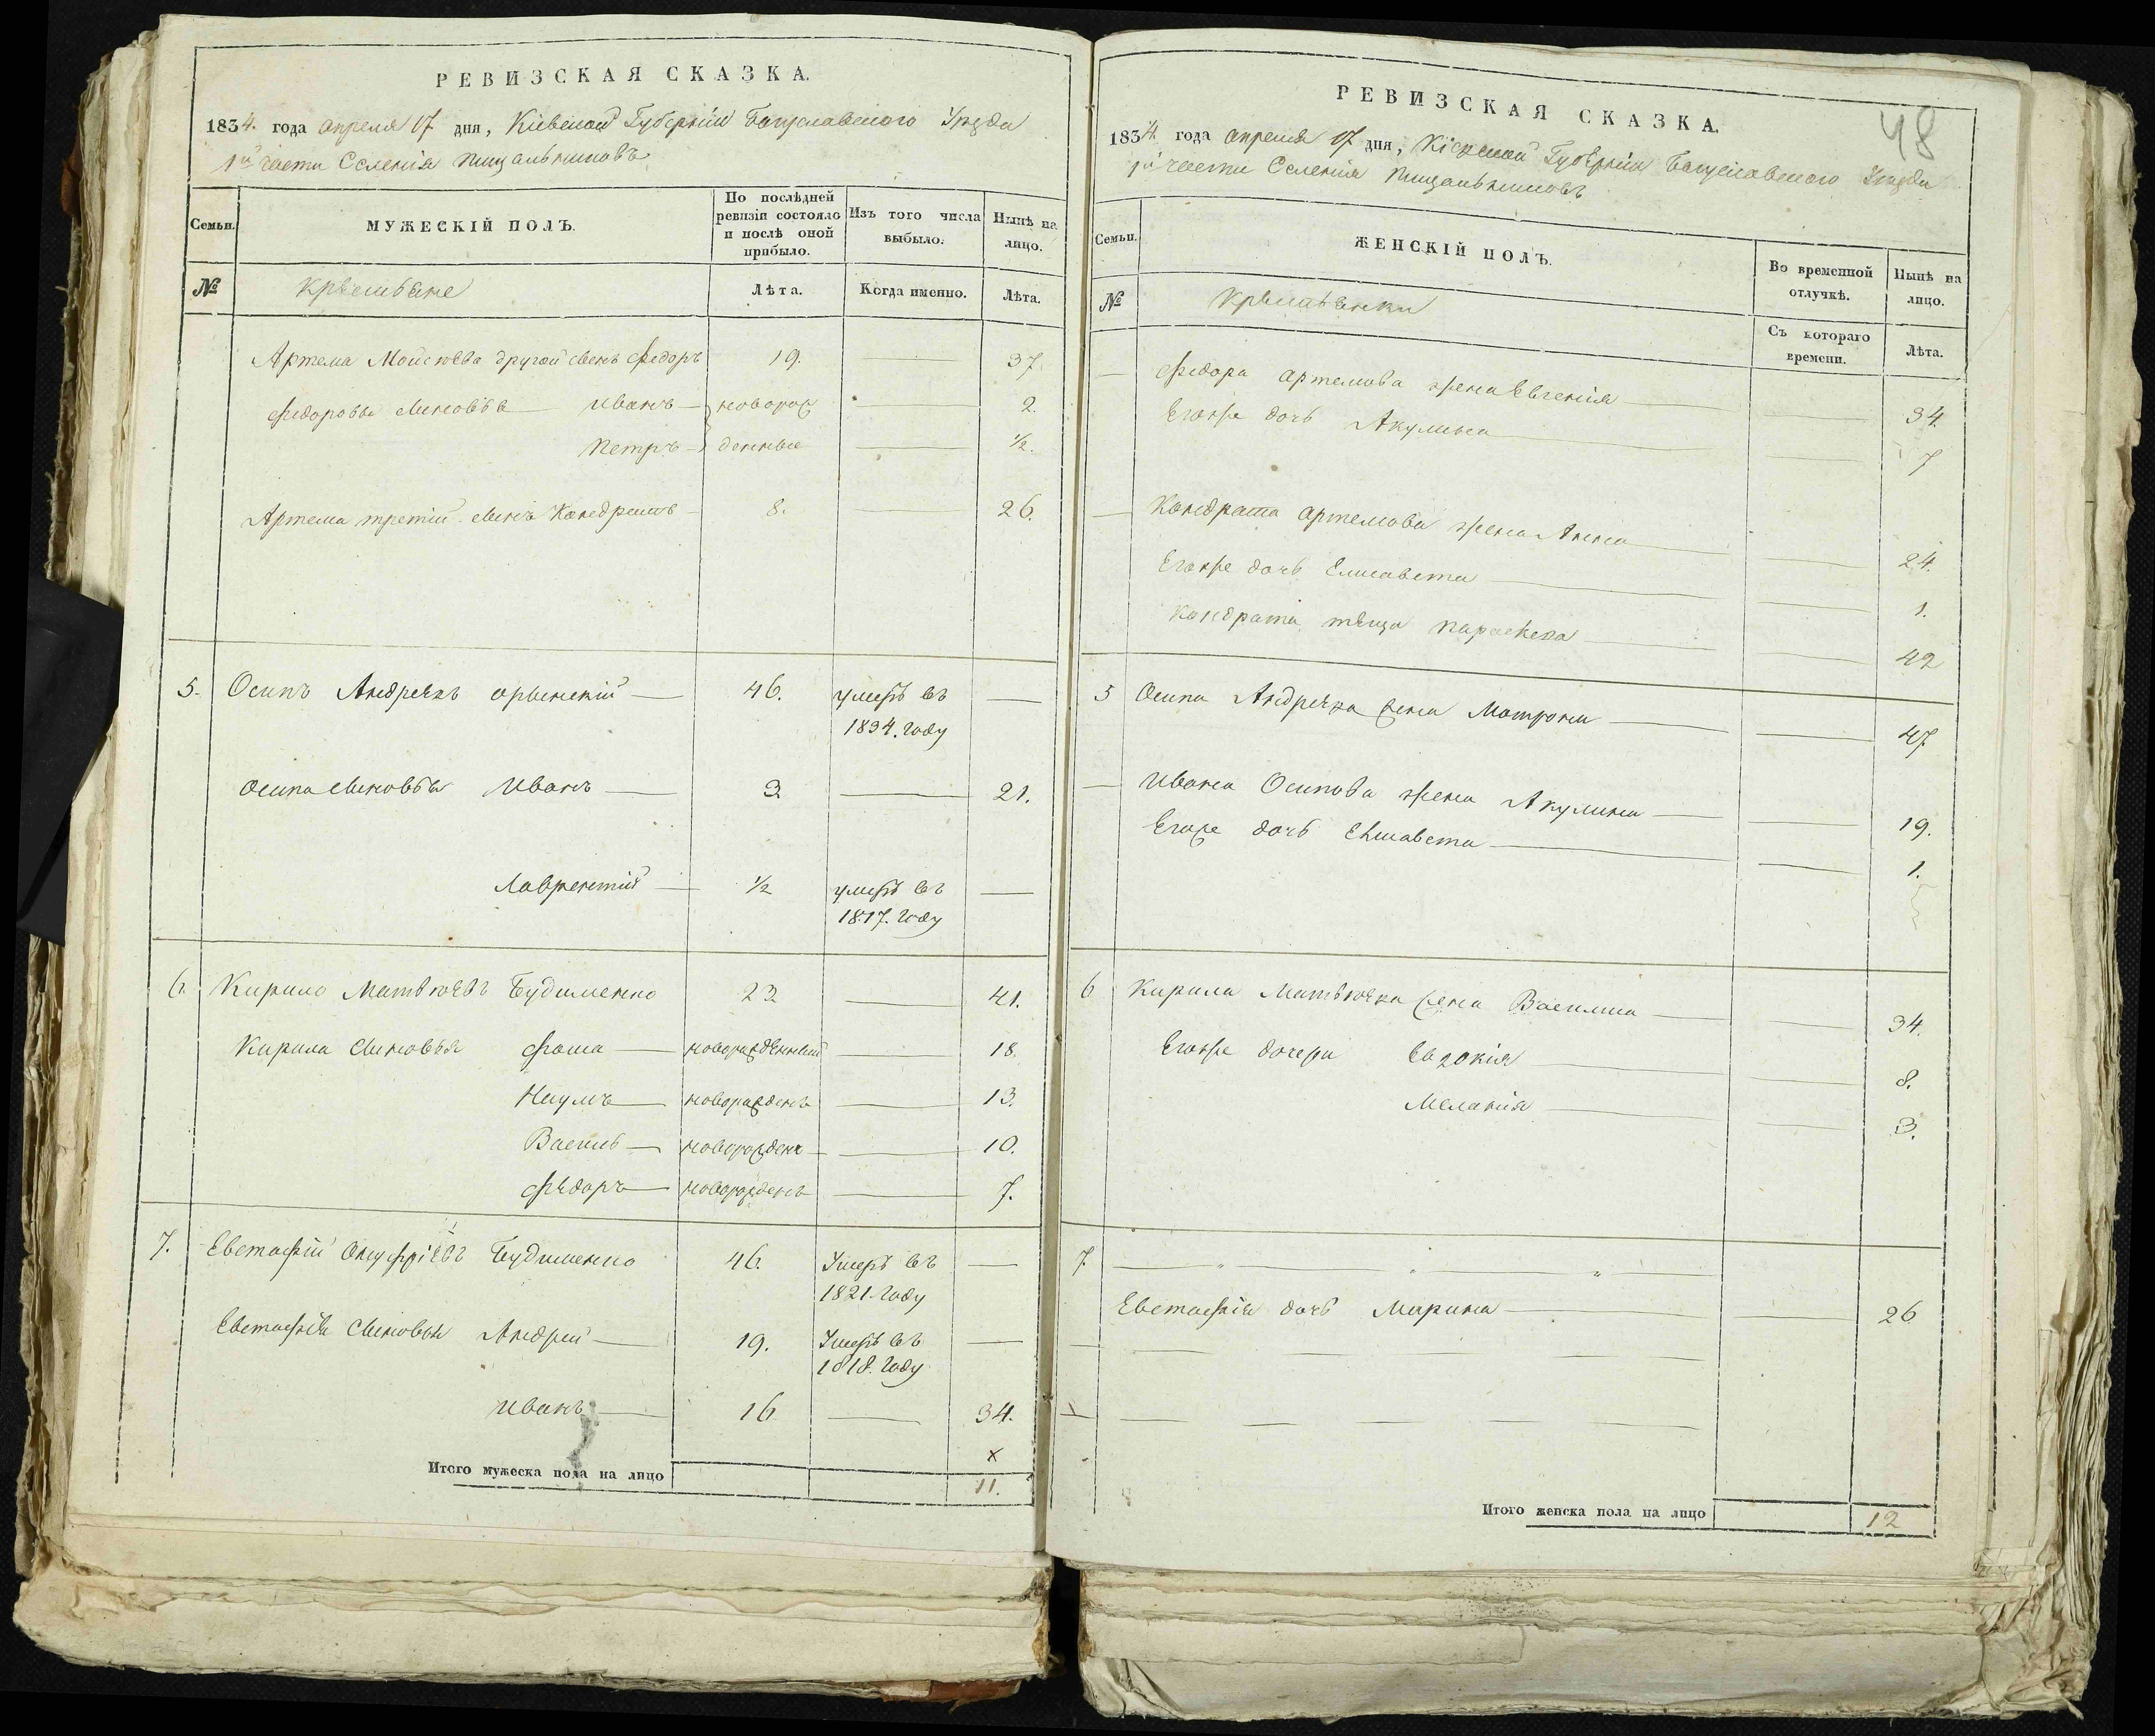 РЕВИЗСКАЯ СКАЗКА.
1834. года апреля 17 дня, Кіевской Губерніи Богуславского Уезда
1й части Селенія Пищальниковъ
Семьи.
МУЖЕСКІЙ ПОЛЪ.
По послѣдней ревизіи состояло и послѣ оной прибыло.
Изъ того числа выбыло.
Нынѣ на лицо.
№
Крестьяне
Лѣта.
Когда именно.
Лѣта.
Артема Моисѣева другой сынъ Федоръ 19. 37.
Федоровы сыновья Иванъ новорож 2.
Петръ денные ½.
Артема третій сынъ Кондратъ 8. 26.
5. Осипъ Андреевъ 46. умеръ въ
1834. году
Осипа сыновья Иванъ 3 21.
Лаврентій ½ умеръ въ
1817. году
6. Кирило Матвѣевъ Будименко 23 41.
Кирила Сыновья Фома новорожденный 18.
Наумъ новорожденъ 13.
Василь новорожденъ 10.
Федоръ новорожденъ 7.
7. Евстафій Онуфріевъ Будименко 46. Умеръ въ
1821. году
Евстафія Сыновья Андрей 19. Умеръ въ
1818. году
Иванъ 16 34.
х
Итого мужеска пола на лицо 11.
48
РЕВИЗСКАЯ СКАЗКА.
1834. года апреля 17 дня, Кіевской Губерніи Богуславского Уезда
1й части Селенія Пищальниковъ
Семьи.
ЖЕНСКІЙ ПОЛЪ.
Во временной отлучкѣ.
Нынѣ на лицо.
№
Крестьянки
Съ котораго времени.
Лѣта.
Федора Артемова жена Евгенія 34.
Егоже дочь Акулина 7
Кондрата Артемова жена Анна 24.
Егоже дочь Елисавета 1.
Кондрата теща Параскева 42
5 Осипа Андреева жена Матрона 47
Ивана Осипова жена Акулина 19.
Егоже дочь Елисавета 1.
6 Кирила Матвѣева жена Василиса 34.
Егоже дочери Евдокія 8.
Меланія 3.
7.
Евстафія дочь Марина 26
Итого женска пола на лицо 12